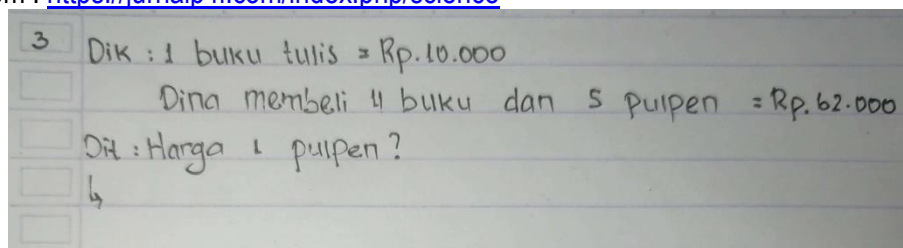 3 Dik : 1 buku tulis = Rp. 10.000
Dina membeli 4 buku dan 5 pulpen = Rp. 62.000
Dit : Harga 1 pulpen ?
↳